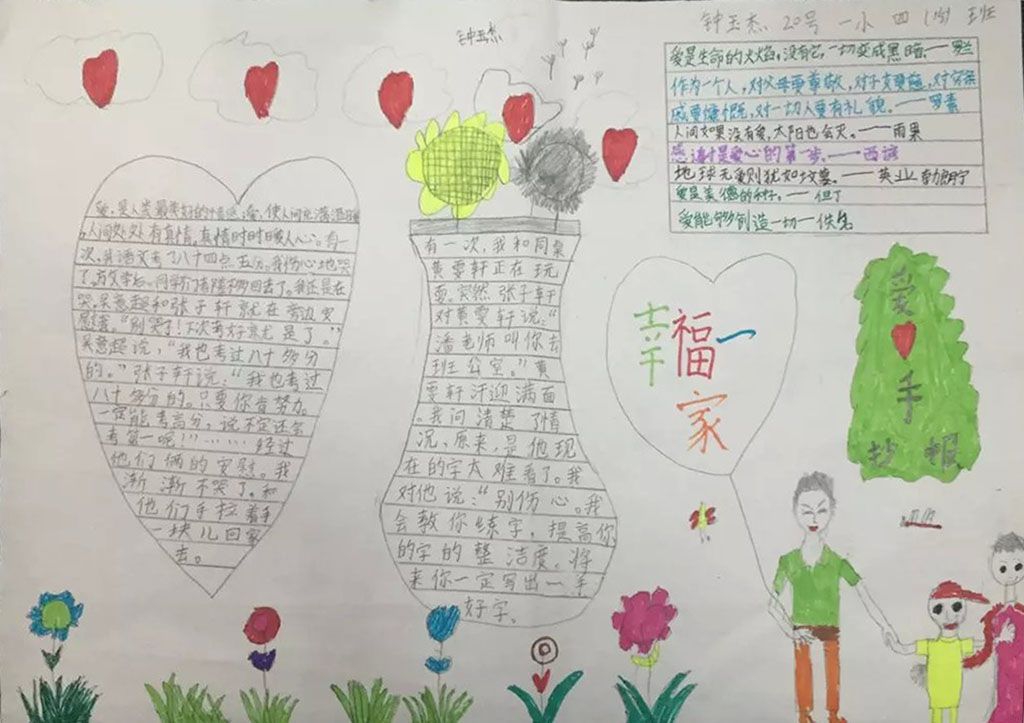 钟玉杰 20号 一小 四 班
钟玉杰
爱是生命的火焰,没有它,一切变成黑暗.——罗兰
作为一个人,对父母要尊敬,对子女要慈,对穷亲
戚要慷慨,对一切人要有礼貌.——罗素
人间如果没有爱,太阳也会灭.——雨果
感谢是爱心的第一步.——西谚
地球无爱则犹如坟墓.——英业 勃朗宁
爱是美德的种子.——但丁
爱能够创造一切—佚名
爱,是人类最美好的情感,爱,使人间充满温暖
,人间处处有真情,真情时时暖人心。有一
次,我语文考了八十四点五分,我伤心地哭
了,同学们陆陆续续回去了。我还是在
哭,吴意超和张子轩就在旁边安
慰:“别哭了!下次考好就是了。”
吴意超说,“我也考过八十多分
的。”张子轩说:“我也考过
八十多分的。只要你肯努力。
一定能考高分,说不定还会
考第一呢!”……经过
他们俩的安慰。我
渐渐不哭了。和
他们手拉着手
一块儿回家
去。
有一次,我和同桌
黄雯轩正在玩
耍。突然张子轩
对黄雯轩说:“
潘老师叫你去
班公室。”黄
雯轩汗迎满面
。我问清楚了情
况,原来,是他现
在的字太难看了。我
对他说:“别伤心。我
会教你练字,提高你
的字的整洁度。将
来你一定写出一手
好字。
幸福一
家
爱
手
抄报